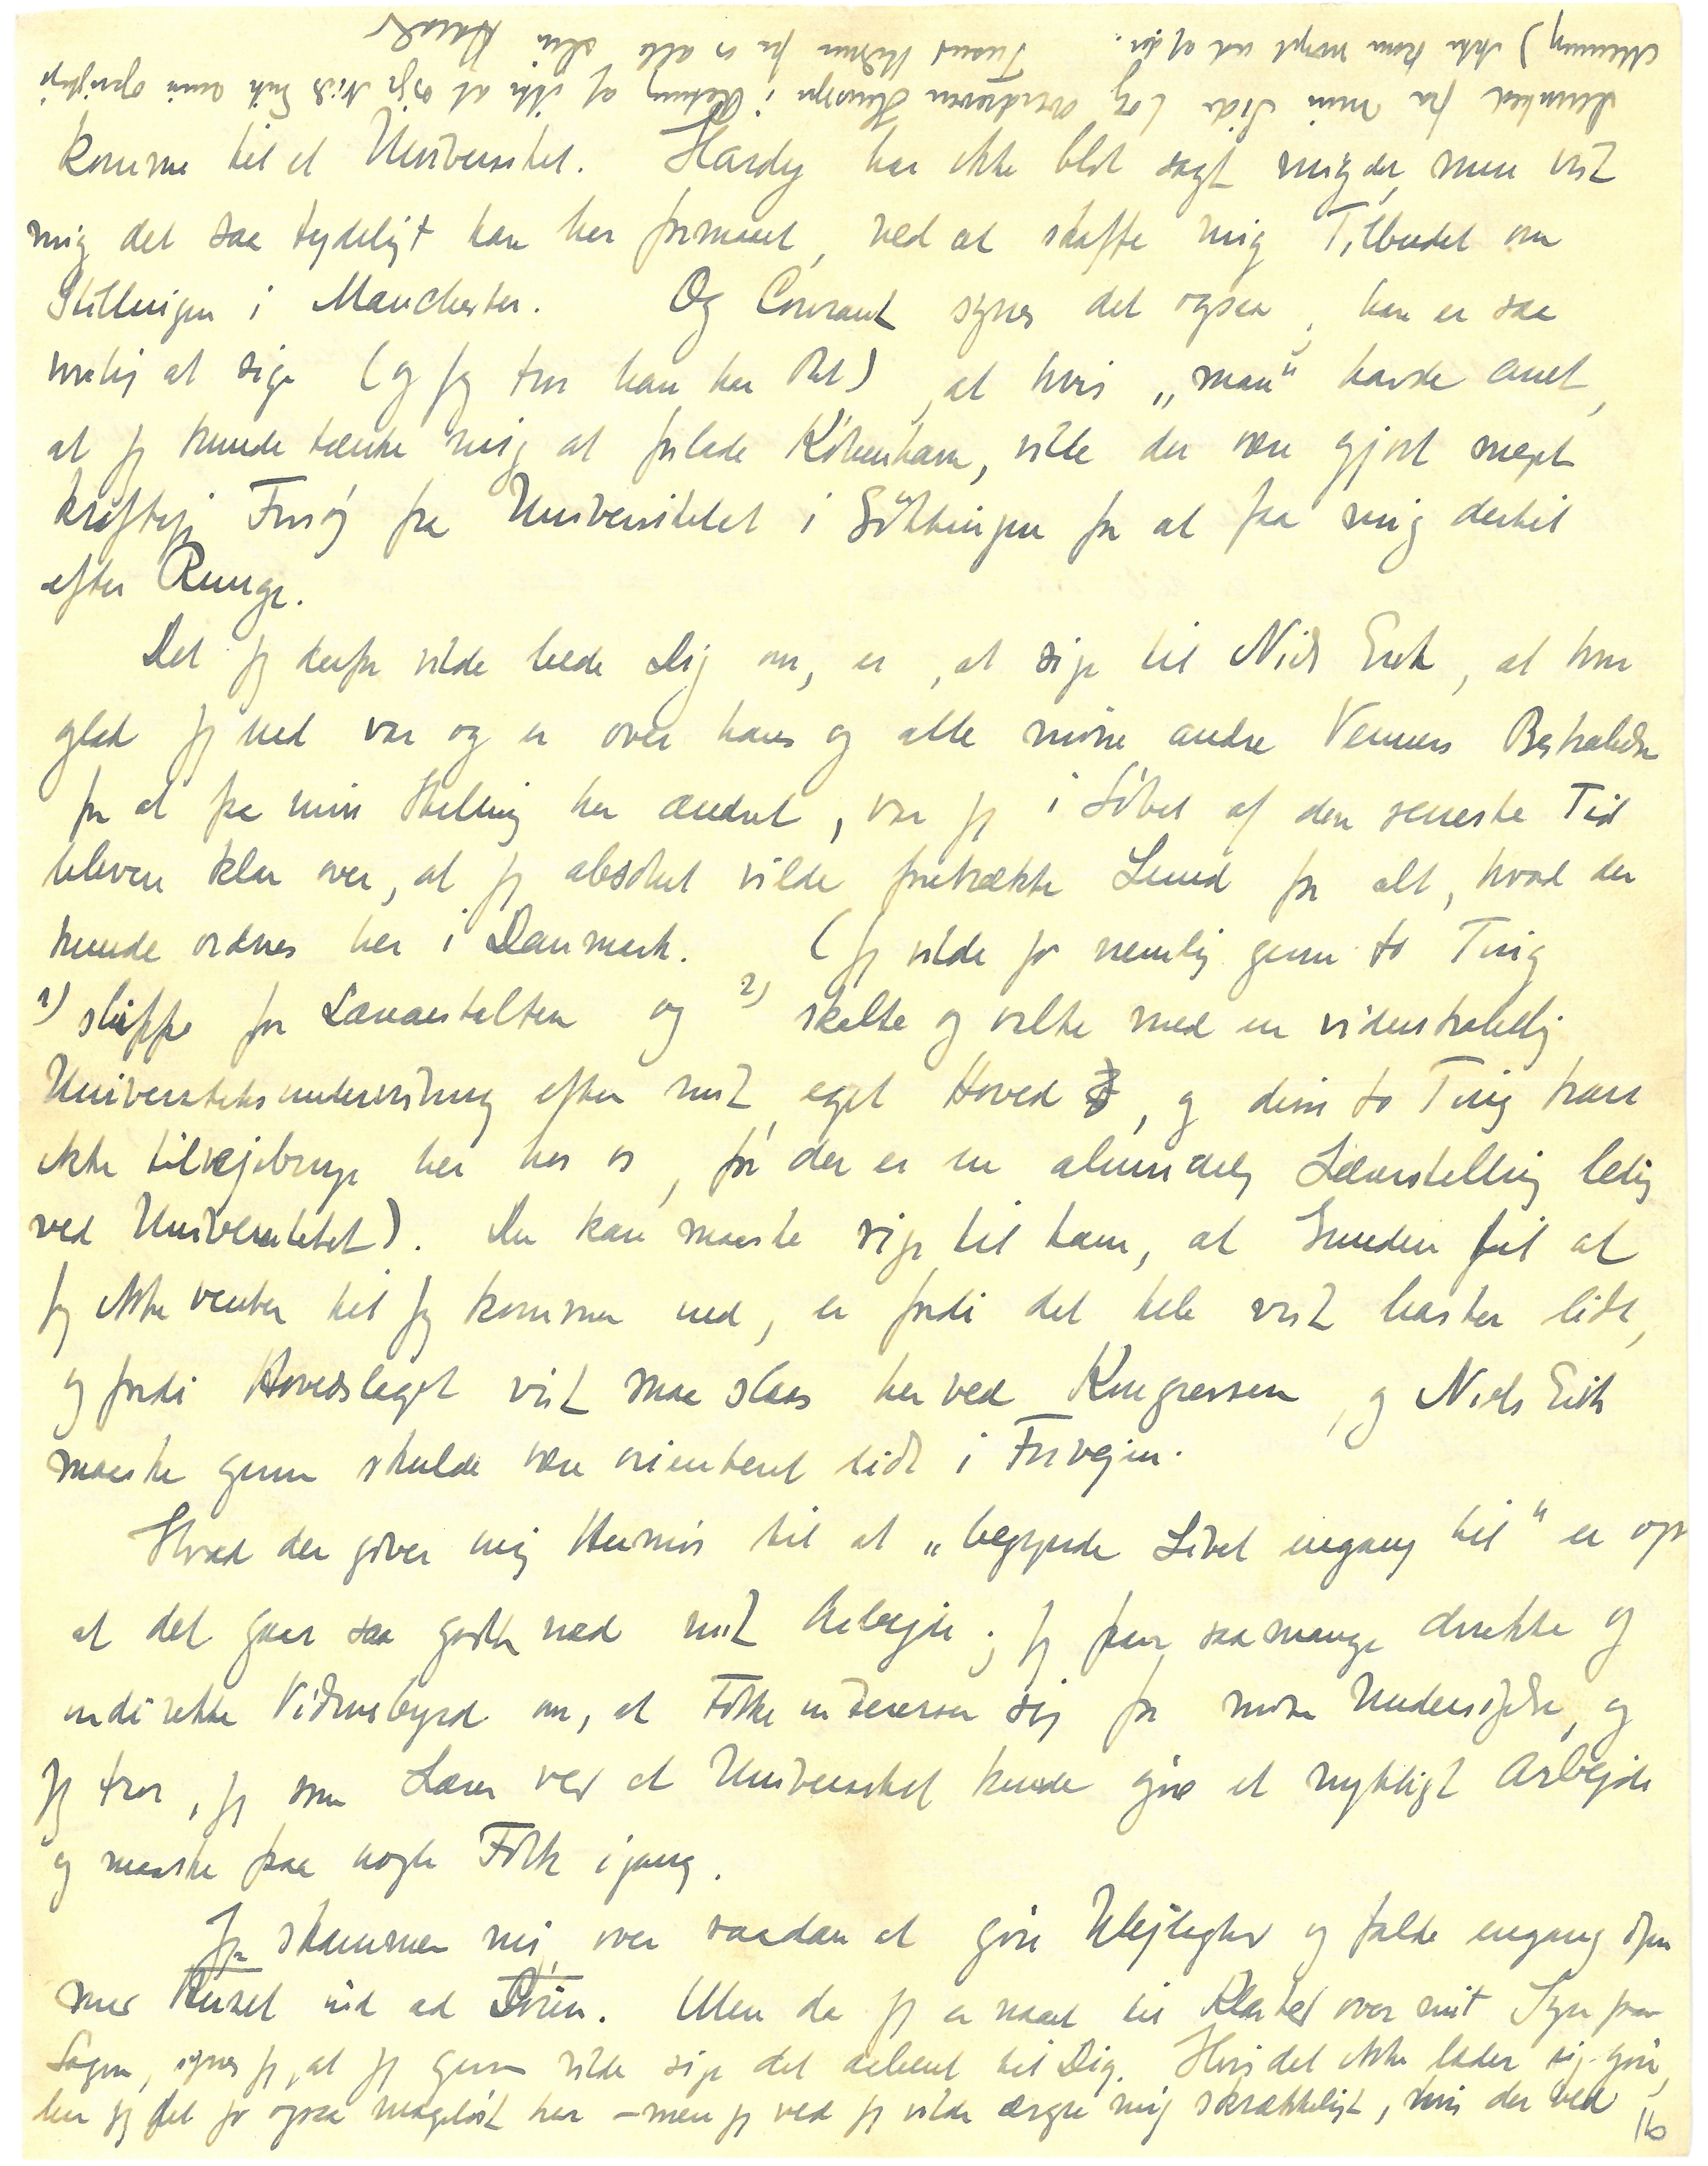 komme til et Universitet. Hardy har ikke blot sagt mig det, men vist
mig det saa tydeligt han har formaaet, ved at skaffe mig Tilbudet om
Stillingen i Manchester. Og Courant synes det ogsaa, han er saa
venlig at sige (og jeg tror han har Ret), at hvis „man“ havde anet,
at jeg kunde tænke mig at forlade København, vilde der være gjort meget
kraftige Forsøg fra Universitetet i Göttingen for at faa mig dertil
efter Runge.
Det jeg derfor vilde bede Dig om, er, at sige til Niels Erik, at hvor
glad jeg end var og er over hans og alle mine andre Venners Bestræbelser
for at faa min Stilling her ændret, var jeg i Løbet af den seneste Tid
bleven klar over, at jeg absolut vilde foretrække Lund for alt, hvad der
kunde ordnes her i Danmark. (Jeg vilde jo nemlig gerne to Ting
1) slippe for Læreanstalten og 2) skalte og valte med en videnskabelig
Universitetsundervisning efter mit eget Hoved, og disse to Ting kan
ikke tilvejebringes her hos os, før der er en almindelig Lærerstilling ledig
ved Universitetet). Du kan maaske sige til ham, at Grunden til at
jeg ikke venter til jeg kommer ned, er fordi det hele vist haster lidt,
og fordi Hovedslaget vist maa slaas her ved Kongressen, og Niels Erik
maaske gerne skulde være orienteret lidt i Forvejen.
Hvad der giver mig Humør til at „begynde Livet engang til“ er
at det gaar saa godt med mit Arbejde; jeg faar saa mange direkte og
indirekte Vidnesbyrd om, at Folk interesserer sig for mine Undersøgelser, og
jeg tror, jeg som Lærer ved et Universitet kunde gøre et nyttigt Arbejde
og maaske faa nogle Folk igang.
Jeg skammer mig over saadan at gøre Ulejlighed og falde engang
med Huset ind ad Døren. Men da jeg er naaet til Klarhed over mit Syn paa
Sagen, synes jeg, at jeg gerne vilde sige det aabent til Dig. Hvis det ikke lader sig gøre,
har jeg det jo ogsaa mageløst her – men jeg ved jeg vilde ærgre mig skrækkeligt, hvis der ved
16
fra min Side (og overdreven Hensyn i Retning af ikke at sige Niels Erik min oprigtige
Mening) ikke kom noget ud af det. Tusind Hilsner fra os alle din Harald